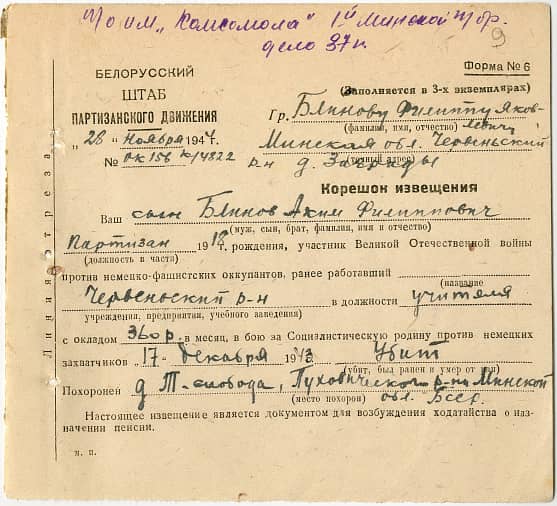 П/о им. "Комсомола" 1й Минской п/бр.
дело 37к.
9
Форма № 6
БЕЛОРУССКИЙ
ШТАБ
ПАРТИЗАНСКОГО ДВИЖЕНИЯ
"28" ноября 1944 г.
№
(Заполняется в 3-х экземплярах)
Гр. Блинову Филиппу Яков-
(фамилия, имя, отчество) левичу
Минская обл. Червеньский
(точный адрес)
р-н д.
Корешок извещения
Ваш сын Блинов Аким Филиппович
(муж, сын, брат, фамилия, имя и отчество)
Партизан 1918 г. рождения, участник Великой Отечественной войны
(должность в части)
против немецко-фашистских оккупантов, ранее работавший
(название
Червеньский р-н в должности учителя
учреждения, предприятия, учебного заведения)
с окладом 360 р. в месяц, в бою за Социалистическую родину против немецких
захватчиков "17" декабря 1943 убит
(убит, был ранен и умер от ран)
Похоронен д. Т-слобода, Пуховического р-на Минской
(место похорон) обл. Бсср.
Настоящее извещение является документом для возбуждения ходатайства о наз-
начении пенсии.
м. п.
Линия отреза